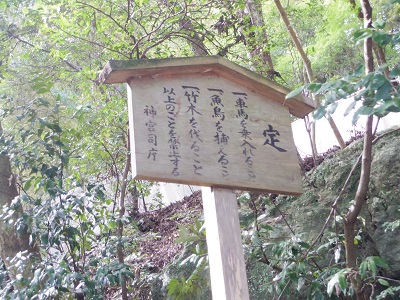 定
一車馬を乗入れること
一魚鳥を捕ふること
一竹木を伐ること
以上のことを禁止する
神宮司庁